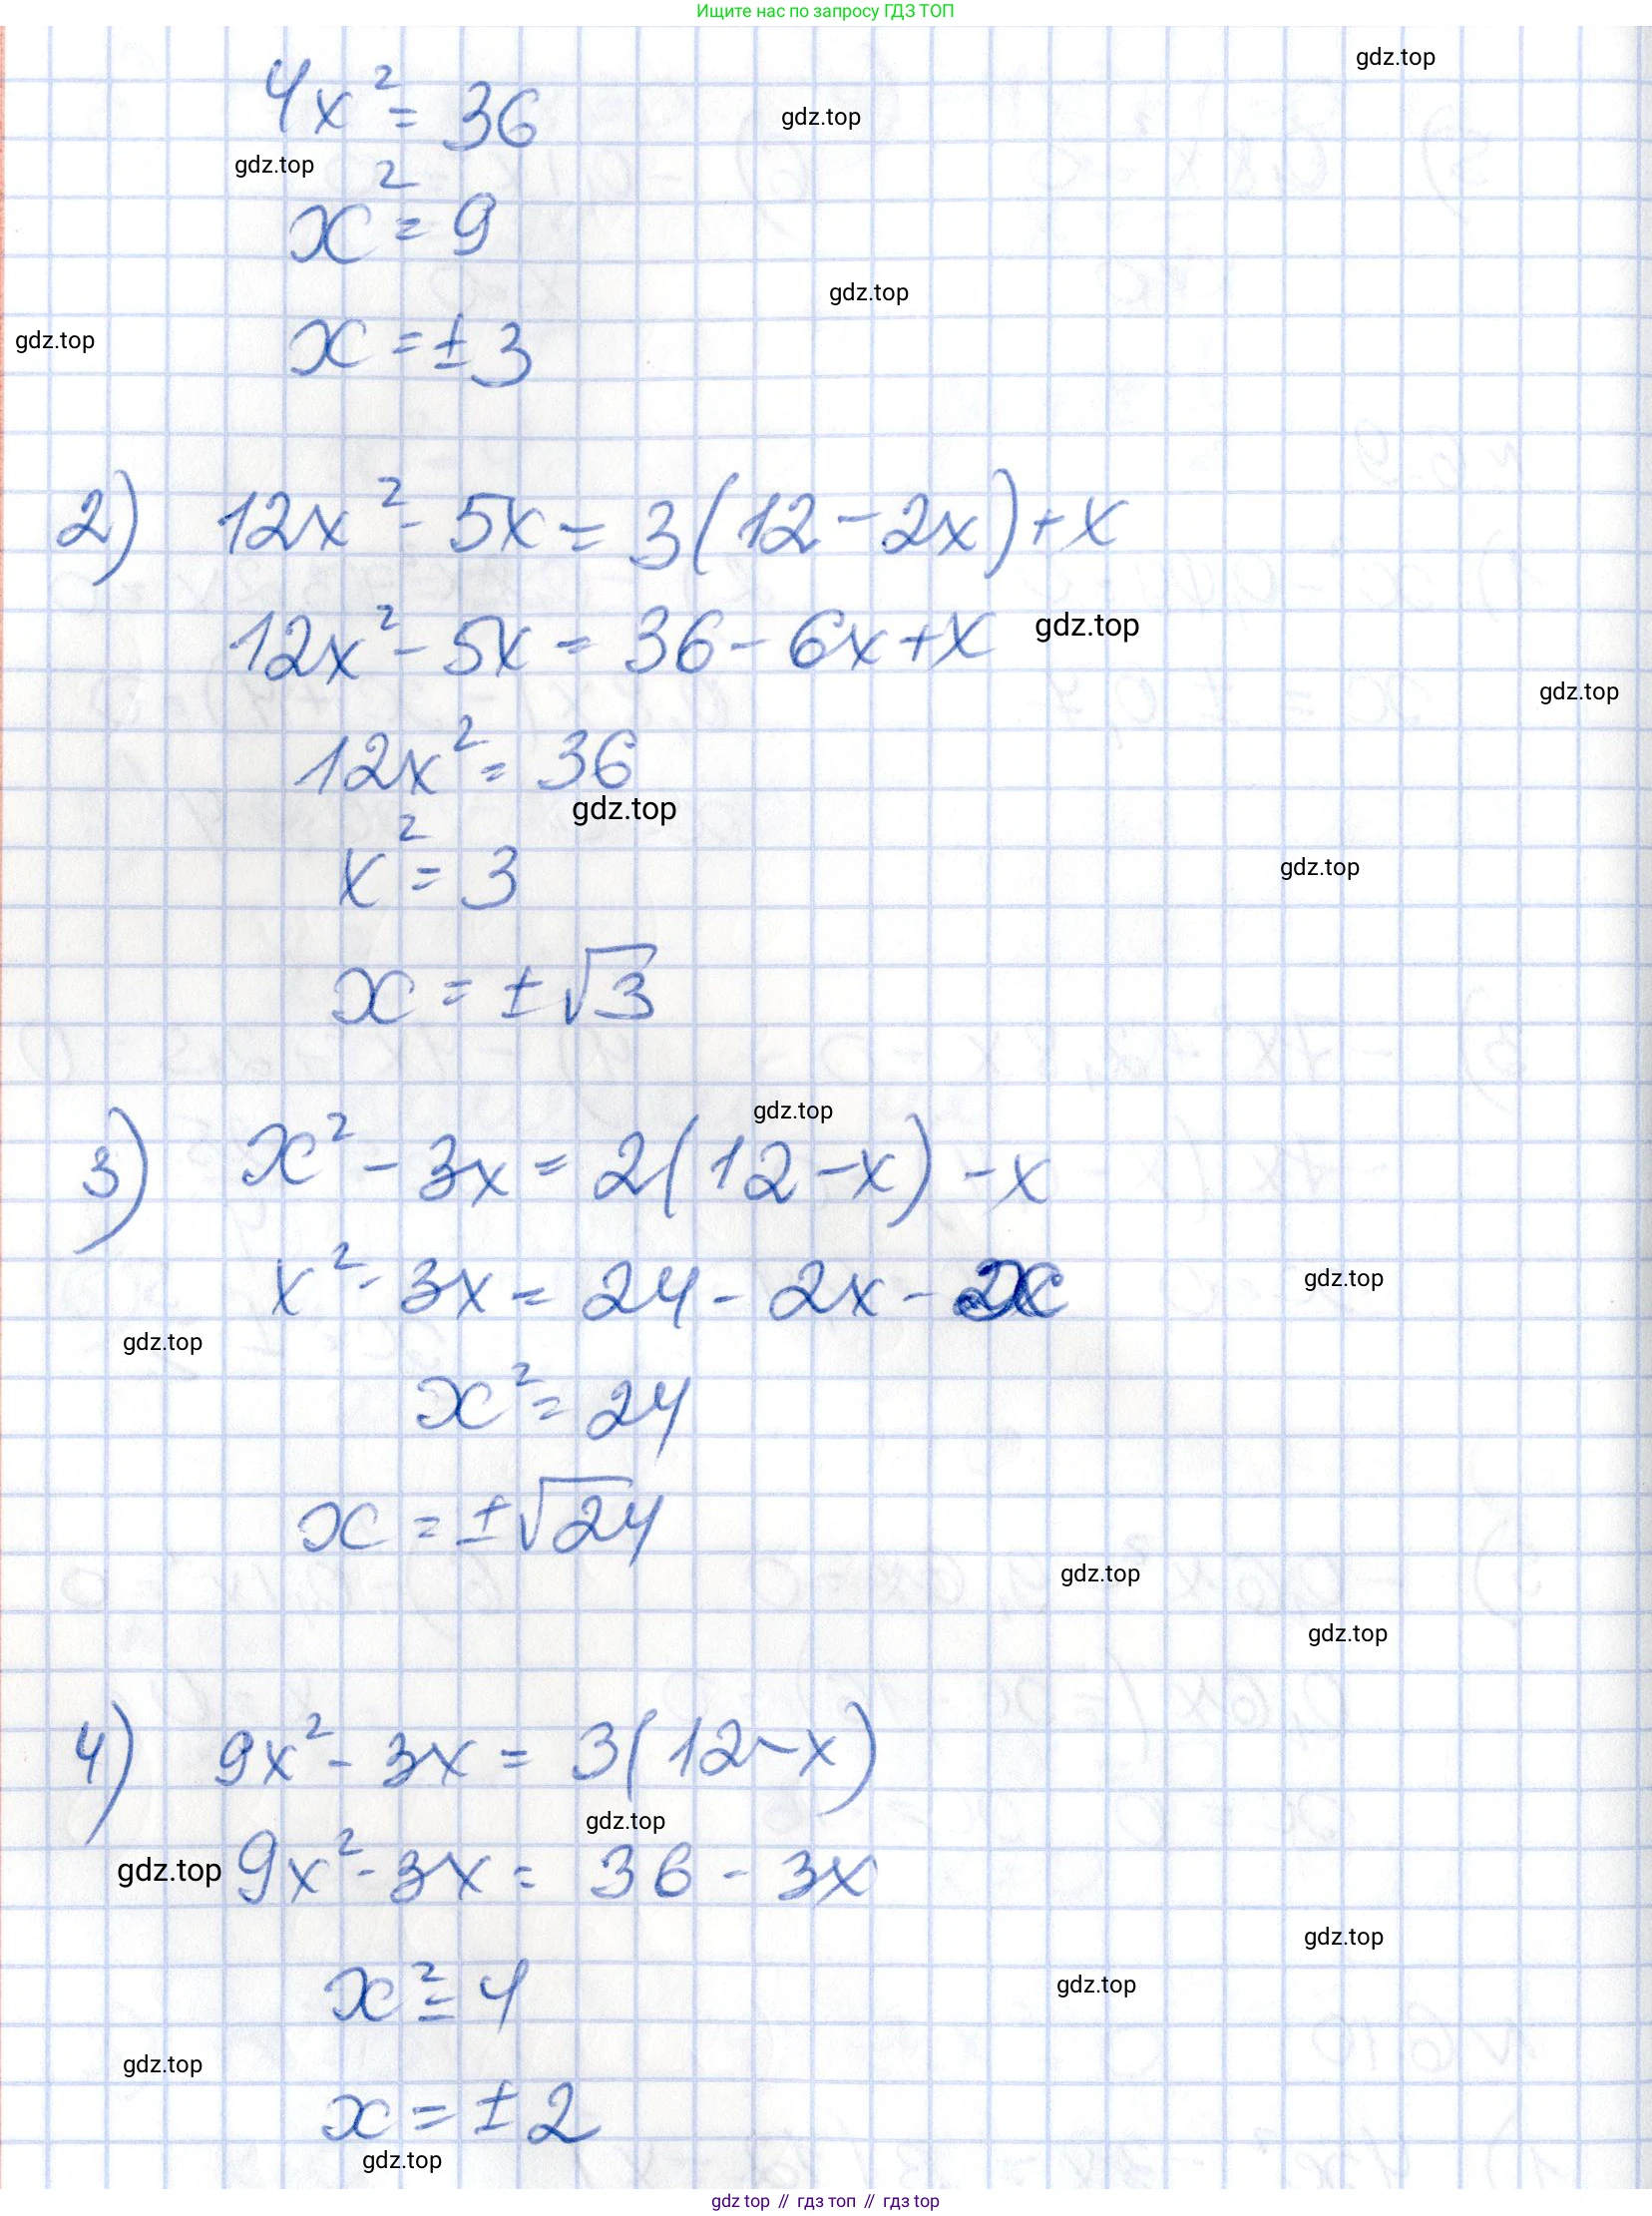 Ищите нас по запросу ГДЗ ТОП
gdz.top
4x² = 36
gdz.top
gdz.top
x² = 9
gdz.top
gdz.top
x = ± 3
2) 12x² - 5x = 3(12 - 2x) + x
12x² - 5x = 36 - 6x + x
gdz.top
gdz.top
12x² = 36
gdz.top
x² = 3
gdz.top
x = ± √3
gdz.top
3) x² - 3x = 2(12 - x) - x
x² - 3x = 24 - 2x - x
gdz.top
gdz.top
x² = 24
x = ± √24
gdz.top
gdz.top
4) 9x² - 3x = 3(12 - x)
gdz.top
gdz.top
9x² - 3x = 36 - 3x
gdz.top
x² = 4
gdz.top
gdz.top
x = ± 2
gdz.top
gdz top // гдз топ // gdz top